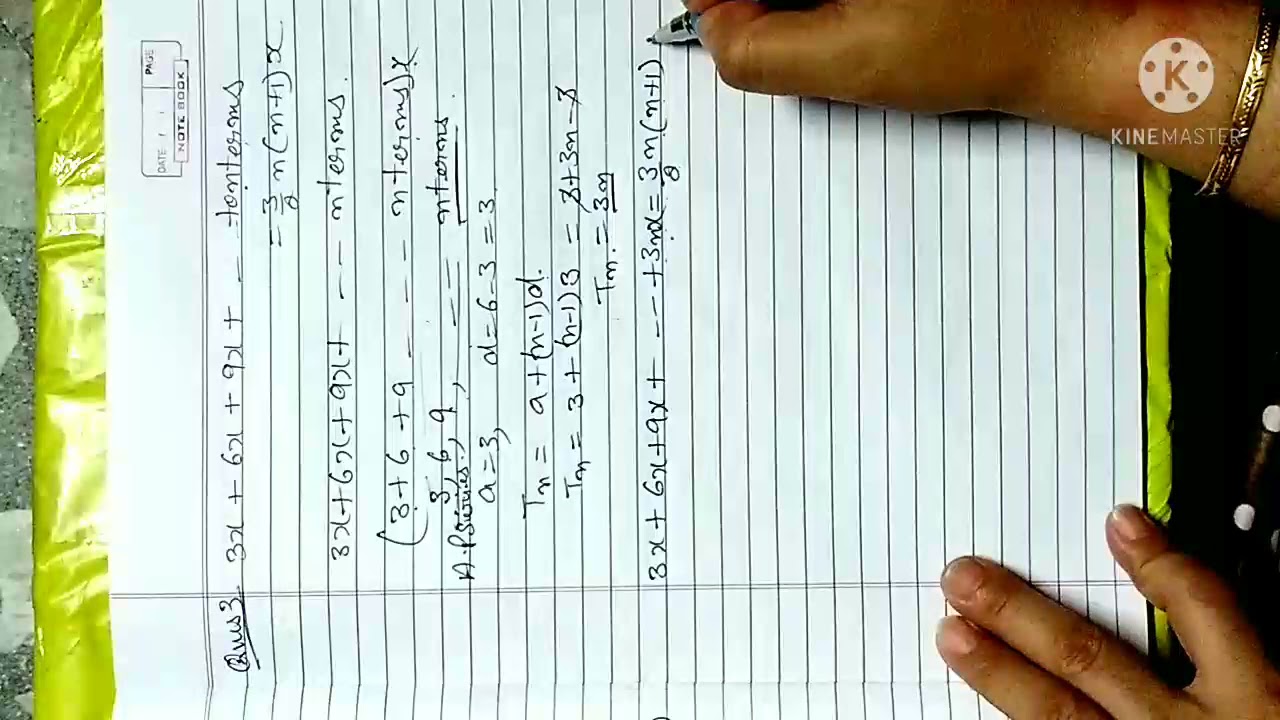 DATE / /
PAGE
NOTE BOOK
Ques 3. 3x + 6x + 9x + - - to n terms
= 3/2 n (n+1) x
3x+6x+9x+ - - - n terms.
(3+6+9 - - - n terms)x
3, 6, 9, = = n terms.
A.P Series.
a=3, d=6-3=3
Tn = a+(n-1)d.
Tn = 3+(n-1)3 = 3+3n-3
Tn = 3n
3x+6x+9x+ - - - +3nx = 3n(n+1)
2
K
KINEMASTER